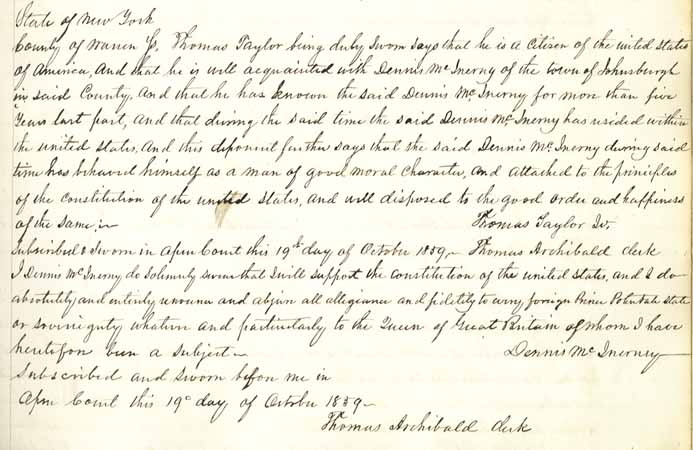 State of New York
County of Warren SS, Thomas Taylor being duly Sworn says that he is a Citizen of the united states
of America, And that he is well acquainted with Dennis McInerny of the town of Johnsburgh
in said County, And that he has known the said Dennis McInerny for more than five
Years last past, And that during the said time the said Dennis McInerny has resided within
the united states, And this deponent further says that the said Dennis McInerny during said
time has behaved himself as a man of good moral Character, and attached to the principles
of the constitution of the united States, and well disposed to the good order and happiness
of the same,
Thomas Taylor
Subscribed & Sworn in Open Court this 19th day of October 1859 Thomas Archibald clerk
I Dennis McInerny do Solemnly swear that I will support the constitution of the united States, and I do
absolutely and entirely renounce and abjure all allegiance and fidelity to every foreign Prince Potentate State
or Sovereignty whatever and particularly to the Queen of Great Britain of whom I have
heretofore been a subject
Dennis McInerney
Subscribed and Sworn before me in
Open Court this 19th day of October 1859
Thomas Archibald Clerk